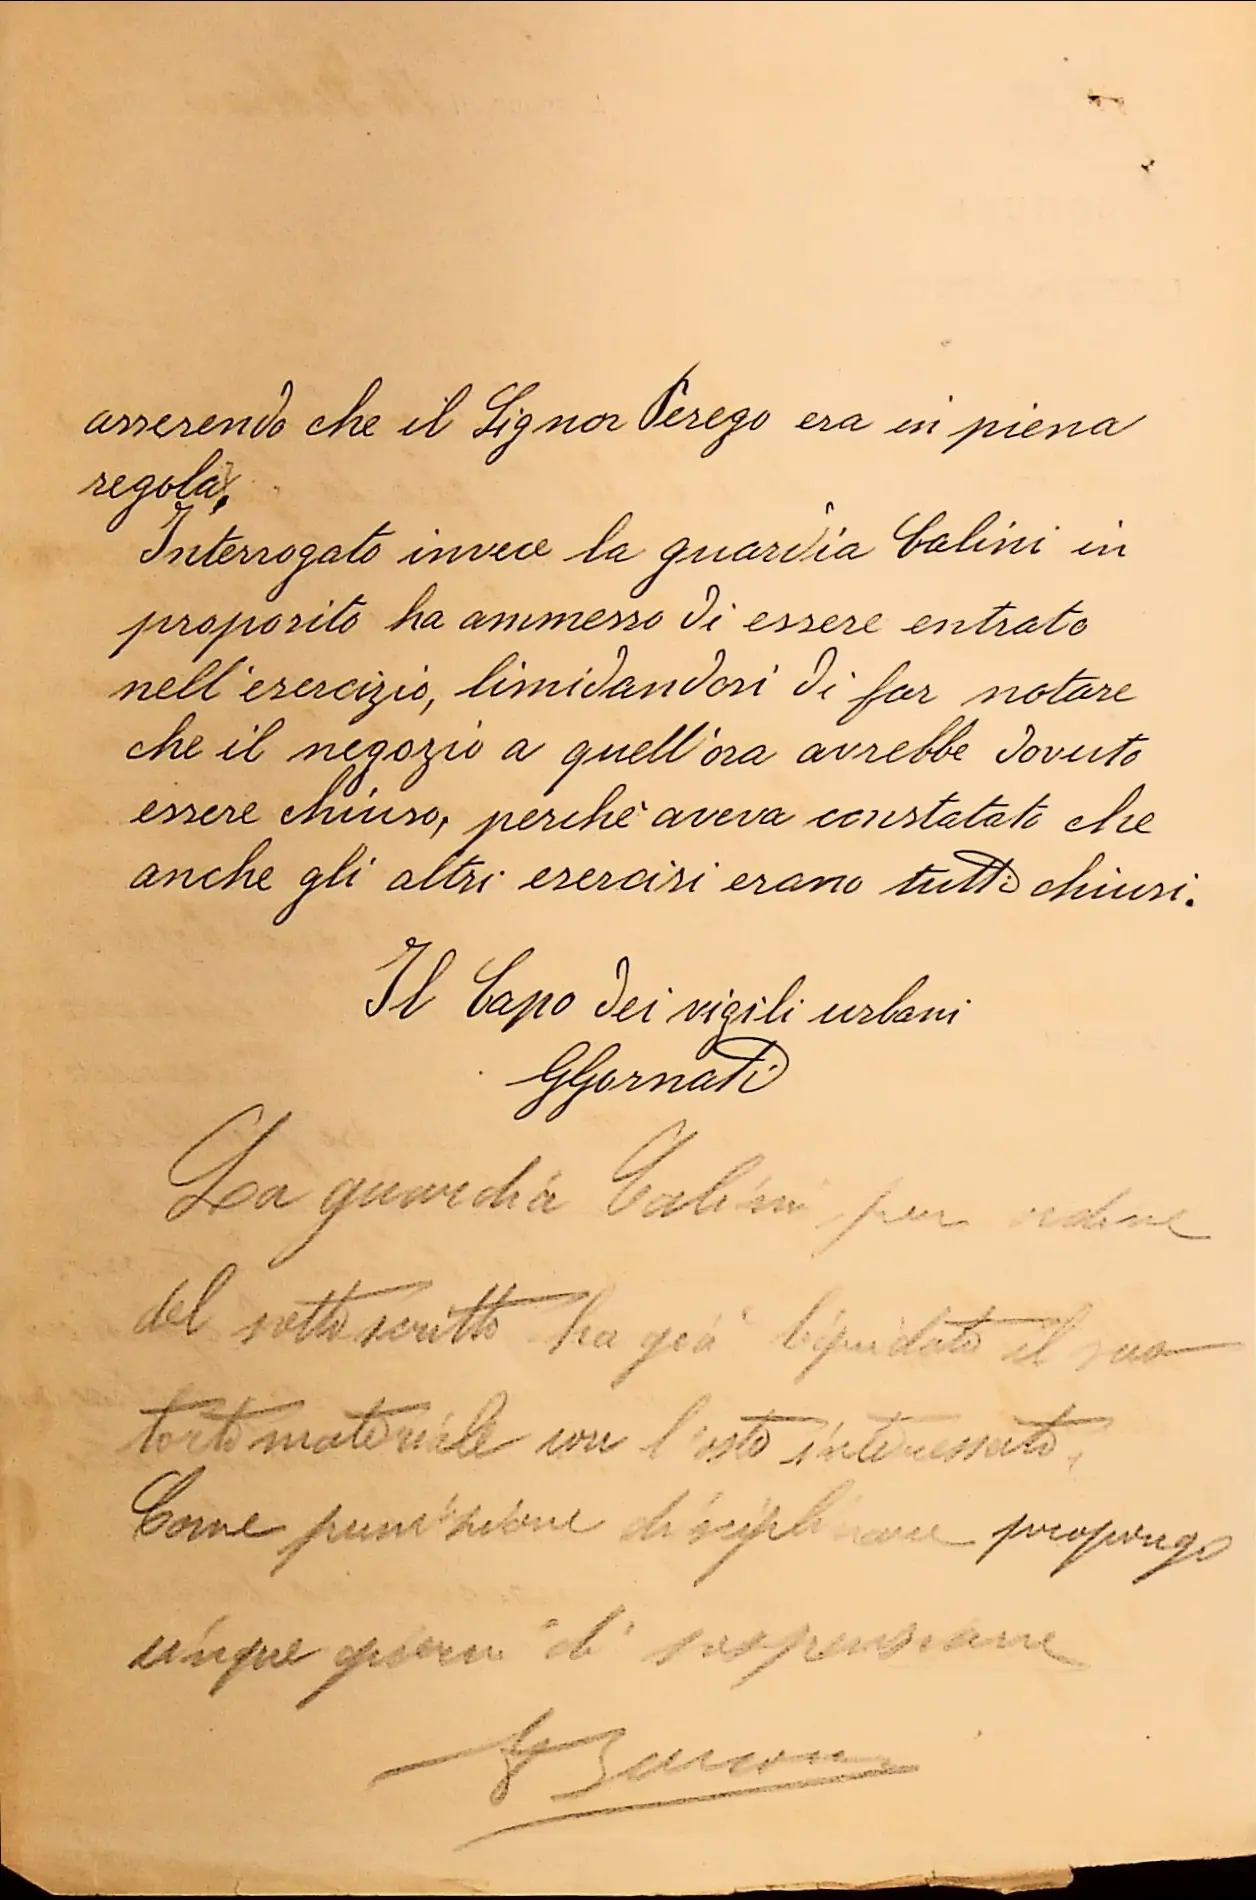 asserendo che il Signor Perego era in piena
regola.
Interrogato invece la guardia Calini in
proposito ha ammesso di essere entrato
nell'esercizio, limidandosi di far notare
che il negozio a quell'ora avrebbe dovuto
essere chiuso, perchè aveva constatato che
anche gli altri esercisi erano tutti chiusi.
Il Capo dei vigili urbani
GGornati
La guardia Calini per ordine
del sottoscritto ha già liquidato il suo
torto materiale con l'oste interessato.
Come punizione disciplinare propongo
cinque giorni di sospensione